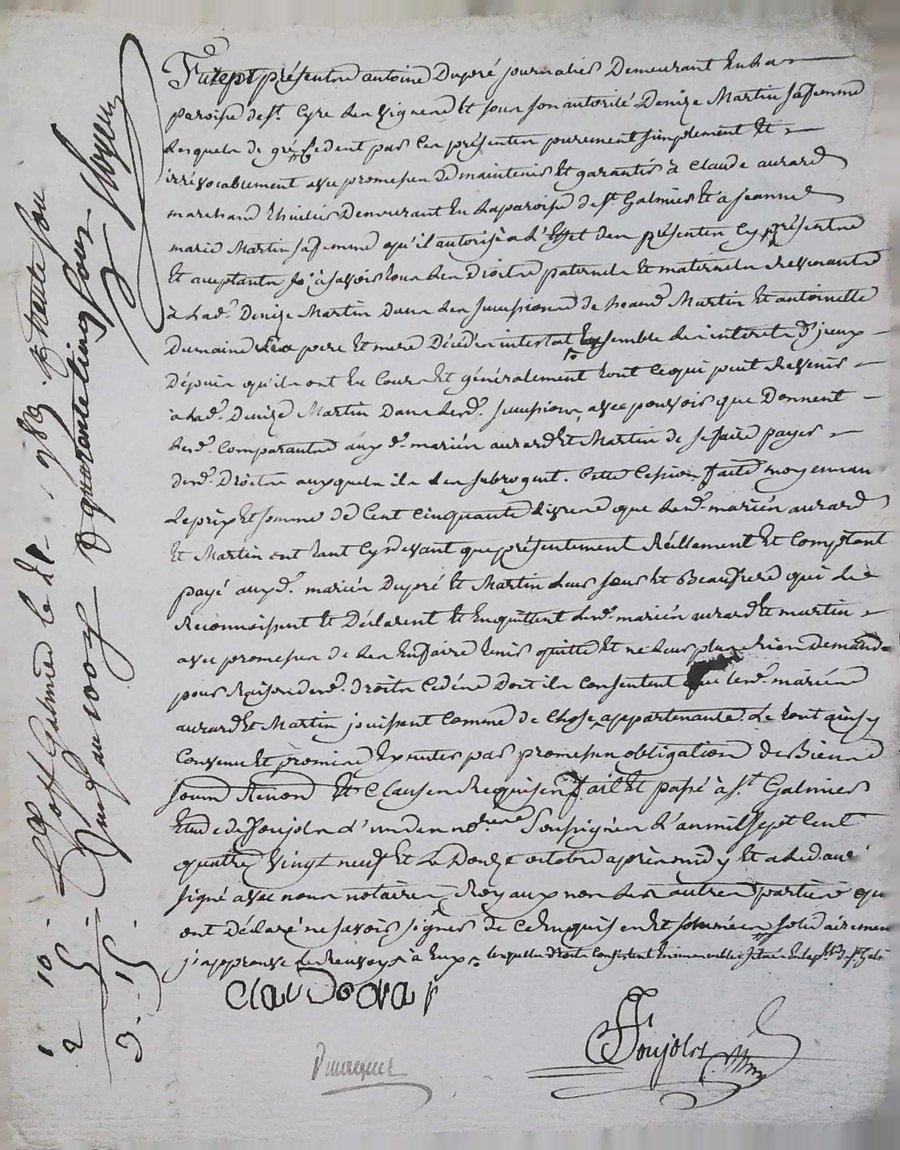 Fut ept présentre antoine Dupré journalier Demeurant En la
paroisse de st. Cyre les vignes Et sous son autorité Denize Martin sa femme
Lesquels de gré Cedent par Ces présentes purement simplement Et
irrévocablement avec promesse De maintenir Et garantir à Claude aurard
marchand huilier Demeurant En la paroisse de st Galmier Et a jeanne
marie Martin sa femme qu'il autorise a L'Effet des présentes Cy présentre
Et acceptants sçavoir tous Les Droits paternels Et maternels Revenants
à lad. Denize Martin Dans Les successions de Martin Et antoinette
Dumaine ses pere Et mere Décédés intestat Ensemble Les interets D'jceux
Depuis qu'ils ont Eu Cours Et généralement tout Ce qui peut Revenir
a Lad. Denize Martin Dans Lesd. successions, avec pouvoir que Donnent
Lesd. Comparants aux d. mariés aurard Et Martin de se faire payer
desd. Droits auxquels ils Les subrogent. Cette Cession faite moyennan
Le prix Et somme de Cent Cinquante Livres que Lesd. mariés aurard
Et Martin ont tant Cy devant que présentement Réellement Et Comptant
payé auxd. mariés Dupré Et Martin Leurs soeur Et Beaufrere qui Le
Reconnoissent Le Déclarent Et En quittent Lesd. mariés aurard Et martin
avec promesse de Les En faire tenir quitte Et ne Leur plus Rien Demander
pour Raison desd. droits Cédés Dont ils Consentent que Lesd. mariés
aurard Et Martin jouissent Comme de Chose appartenante. Le tout ainsy
Convenu Et promis Executer par promesse obligation de Biens
soum Renon Et Clauses Requises fait Et passé à st. Galmier
Etude de Poujols L'un des nores Soussignés L'an mil sept Cent
quatre vingt neuf Et Le Douze octobre après midy Et a Led au
signé avec nous notaires Royaux non Les autres parties qu
ont Déclaré ne savoir signer de Ce Enquis En Et solidairemen
j'approuve Le Renvoy a Eux Lesquels Droits Consistent En immeubles situés En la psse De st Galm
Claudo ovar
Dmagnes
Poujols
Cff. a st Galmier le 21 1789. trente sou
quarante cinq sous
1 10
2 5
3. 15.